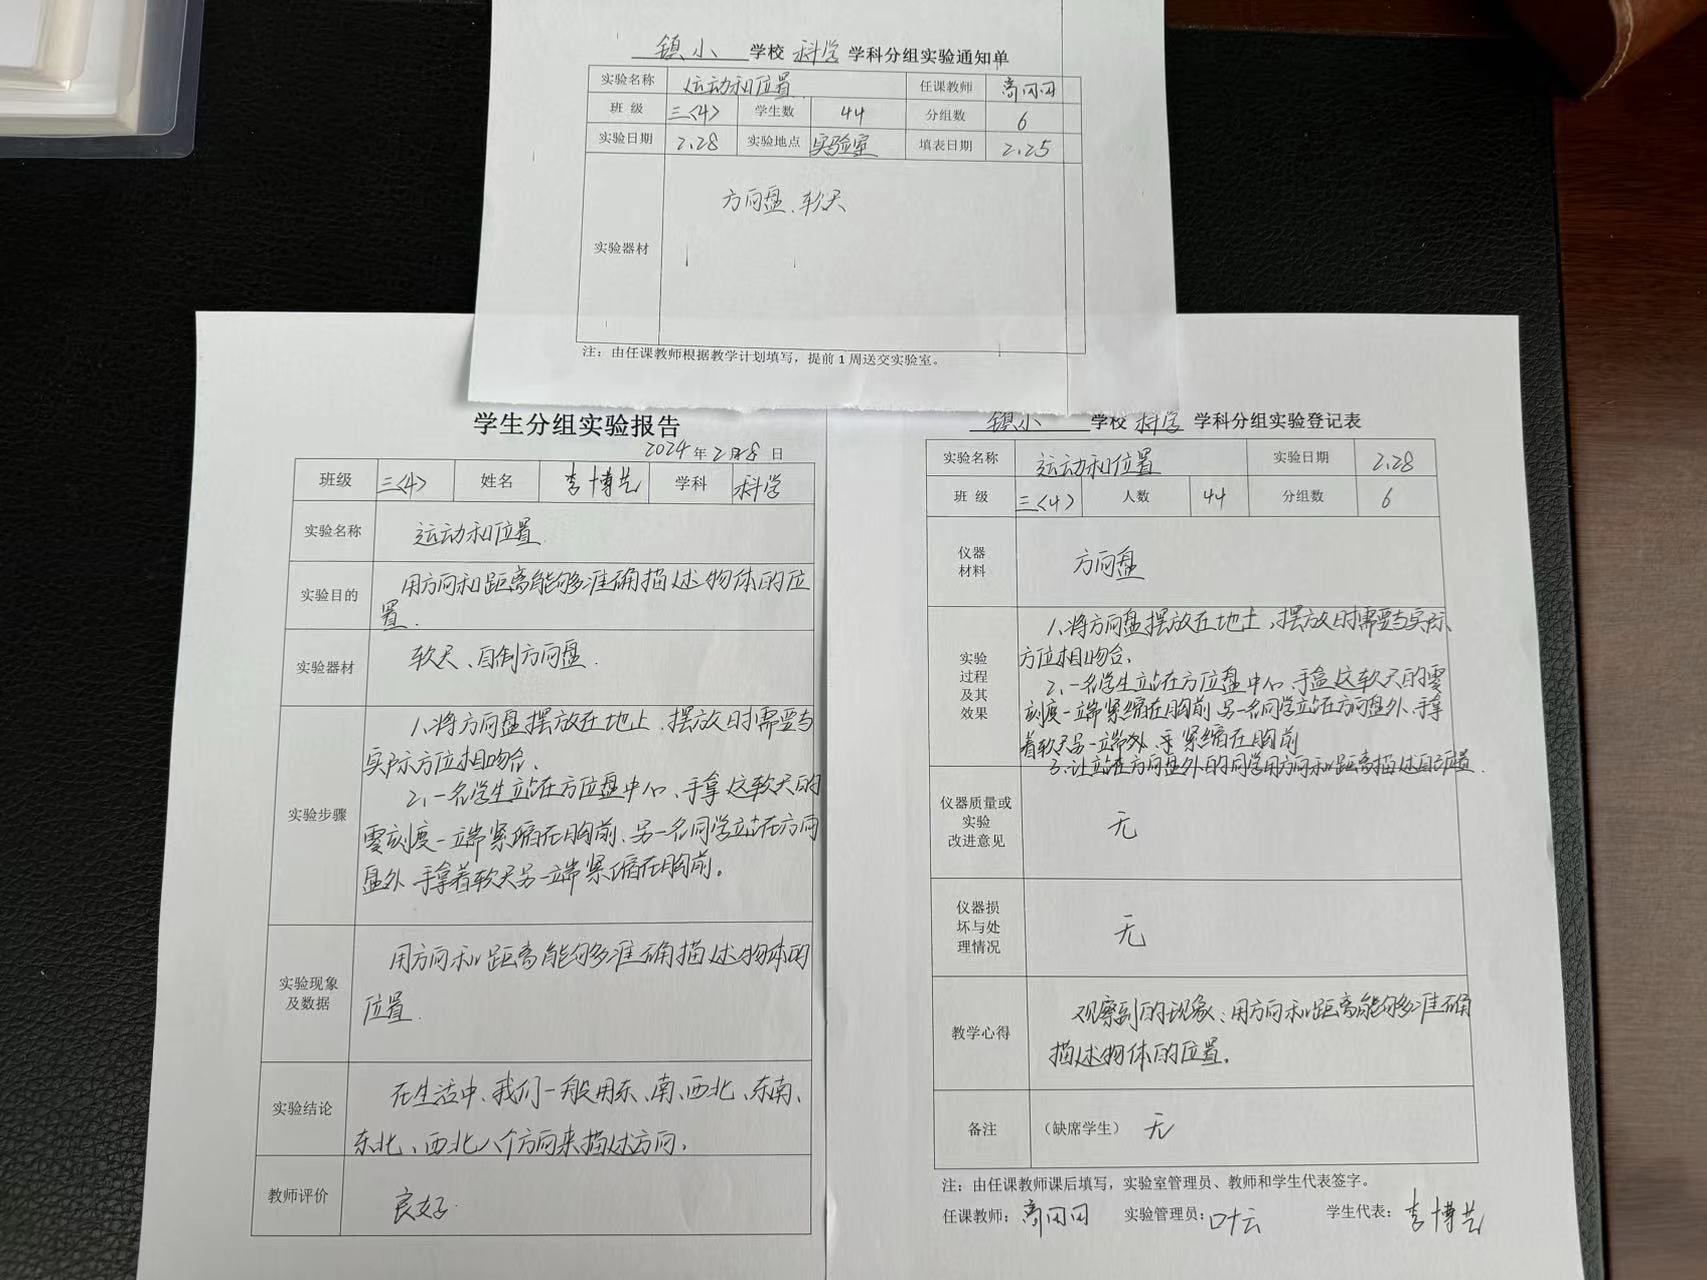 镇小 学校 科学 学科分组实验通知单
实验名称 运动和位置 任课教师
班 级 三〈4〉 学生数 44 分组数 6
实验日期 2.28 实验地点 实验室 填表日期 2.25
实验器材 方向盘、软尺
注：由任课教师根据教学计划填写，提前1周送交实验室。
学生分组实验报告
2024年2月28日
班级 三〈4〉 姓名 李博艺 学科 科学
实验名称 运动和位置
实验目的 用方向和距离能够准确描述物体的位
置.
实验器材 软尺、自制方向盘.
实验步骤
1、将方向盘摆放在地上、摆放时需要与
实际方位相吻合、
2、一名学生立站在方位盘中心、手拿这软尺的
零刻度一端紧缩在胸前、另一名同学立站在方向
盘外 手拿着软尺另一端紧缩在胸前。
实验现象
及数据
用方向和距离能够准确描述物体的
位置.
实验结论
在生活中、我们一般用东、南、西北、东南、
东北、西北八个方向来描述方向、
教师评价 良好.
镇小 学校 科学 学科分组实验登记表
实验名称 运动和位置 实验日期 2.28
班 级 三〈4〉 人数 44 分组数 6
仪器
材料
方向盘
实验
过程
及其
效果
1、将方向盘摆放在地上、摆放时需要与实际
方位相吻合、
2、一名学生立站在方位盘中心、手拿这软尺的零
刻度一端紧缩在胸前、另一名同学立站在方向盘外、手拿
着软尺另一端 手紧缩在胸前
3、让立站在方向盘外的同学用方向和距离描述自己位置.
仪器质量或
实验
改进意见
无
仪器损
坏与处
理情况
无
教学心得
观察到的现象：用方向和距离能够准确
描述物体的位置。
备注 （缺席学生） 无
注：由任课教师课后填写，实验室管理员、教师和学生代表签字。
任课教师： 实验管理员：叶云 学生代表：李博艺